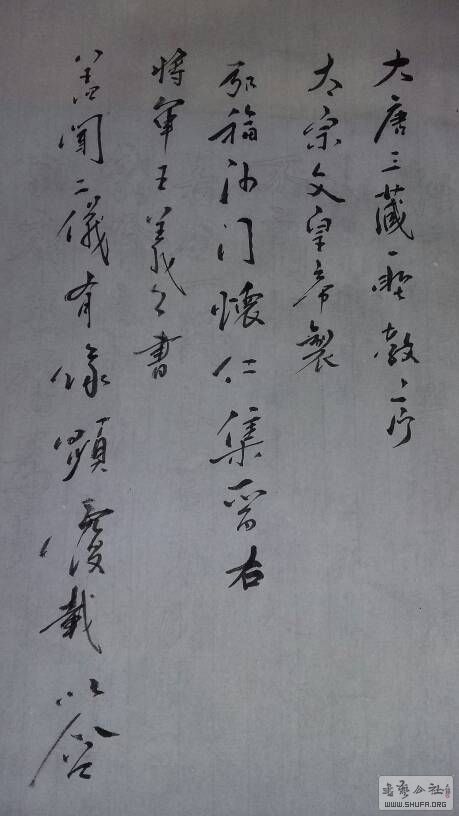 大唐三藏聖教序
太宗文皇帝製
弘福沙門懷仁集晉右
將軍王羲之書
蓋聞二儀有像顯覆載以含
書藝公社
WWW.SHUFA.ORG